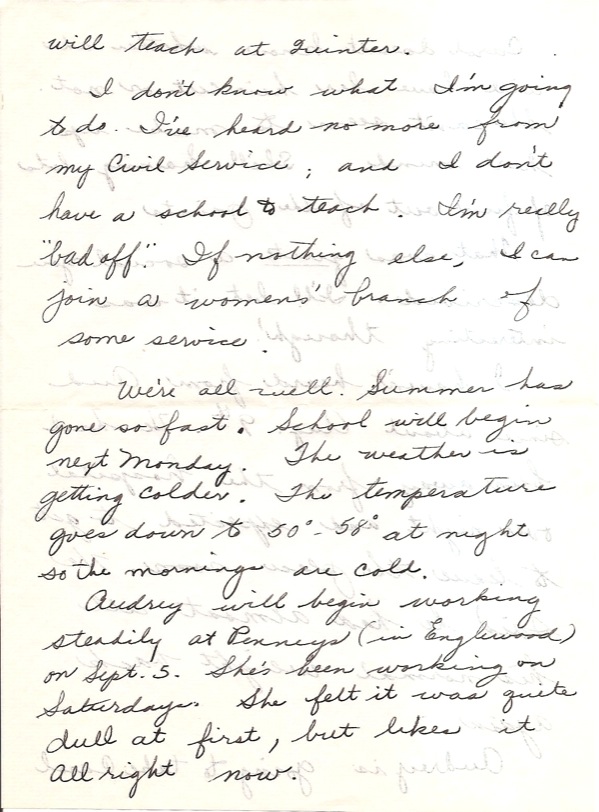 will teach at Quinter.
I don't know what I'm going
to do. I've heard no more from
my Civil Service; and I don't
have a school to teach. I'm really
"bad off". If nothing else, I can
join a womens' branch of
some service.
We're all well. Summer has
gone so fast. School will begin
next Monday. The weather is
getting colder. The temperature
goes down to 50° - 58° at night
so the mornings are cold.
Audrey will begin working
steadily at Penneys (in Englewood)
on Sept. 5. She's been working on
Saturdays. She felt it was quite
dull at first, but likes it
all right now.